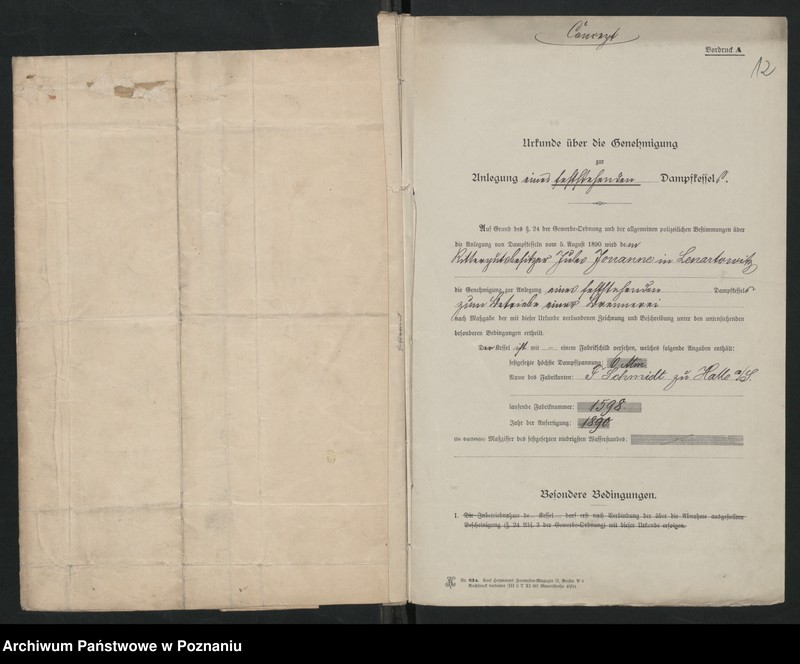 Concept
Vordruck A
12
Urkunde über die Genehmigung
zur
Anlegung eines feststehenden Dampfkessels.
Auf Grund des §. 24 der Gewerbe-Ordnung und der allgemeinen polizeilichen Bestimmungen über
die Anlegung von Dampfkesseln vom 5. August 1890 wird dem
Rittergutsbesitzer Jules Jouanne in Lenartowitz
die Genehmigung zur Anlegung eines feststehenden Dampfkessels
zum Betriebe einer Brennerei
nach Maßgabe der mit dieser Urkunde verbundenen Zeichnung und Beschreibung unter den untenstehenden
besonderen Bedingungen ertheilt.
Der Kessel ist mit einem Fabrikschild versehen, welches folgende Angaben enthält:
festgesetzte höchste Dampfspannung: 6 Atm.
Name des Fabrikanten: F Schmidt zu Halle a/S.
laufende Fabriknummer: 1598
Jahr der Anfertigung: 1890
Maßziffer des festgesetzten niedrigsten Wasserstandes:
Besondere Bedingungen.
1. Die Inbetriebnahme de Kessel darf erst nach Verbindung der über die Abnahme ausgestellten
Bescheinigung (§. 24 Abs. 3 der Gewerbe-Ordnung) mit dieser Urkunde erfolgen.
Archiwum Państwowe w Poznaniu